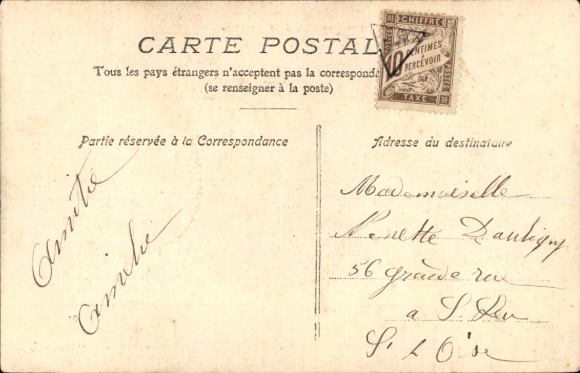 CARTE POSTAL
Tous les pays étrangers n'acceptent pas la correspond
(se renseigner à la poste)
CHIFFRE
10 CENTIMES
À
PERCEVOIR
POSTES
TAXE
Partie réservée à la Correspondance
Adresse du destinataire
Amitié
Amitié
Mademoiselle
Dantigny
56 grande rue
a S. Leu
S. & Oise